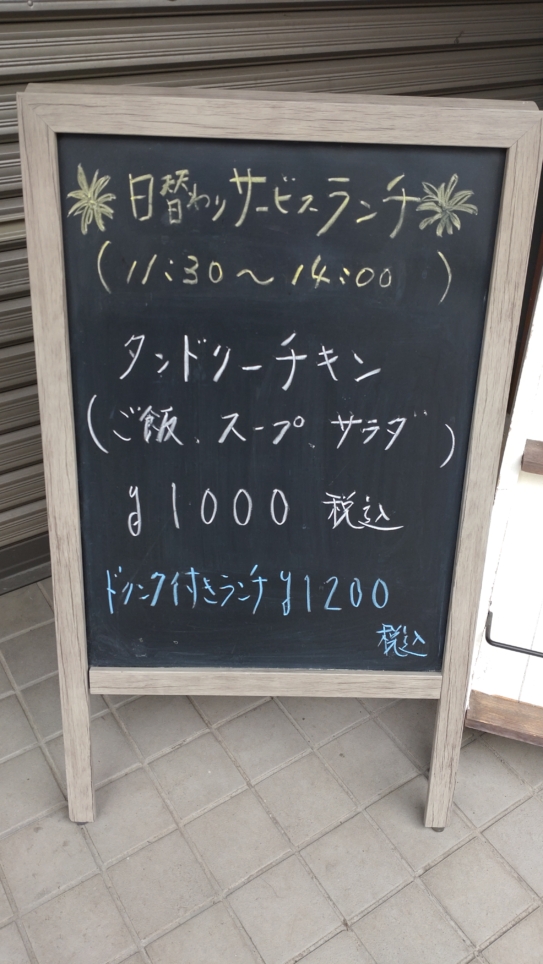 日替わりサービスランチ
(11:30～14:00 )
タンドリーチキン
(ご飯、スープ、サラダ)
¥1000 税込
ドリンク付きランチ¥1200
税込